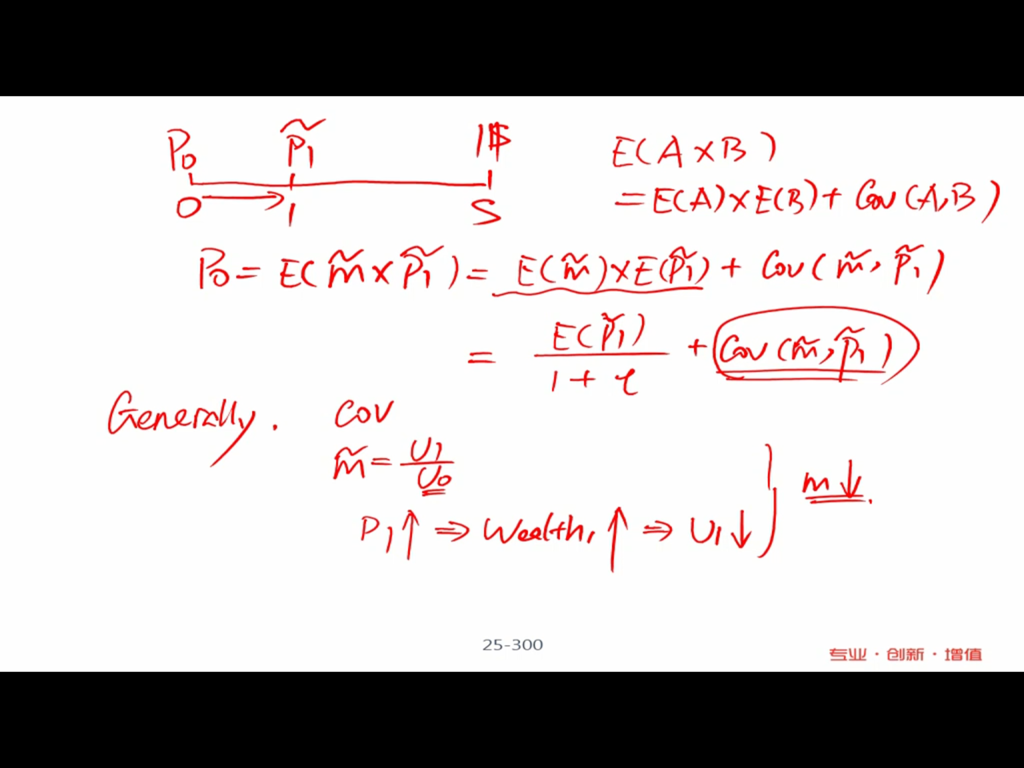 P₀ P̃₁ 1$
0 1 S
E(A×B)
=E(A)×E(B)+Cov(A,B)
P₀=E(m̃×P̃₁)=E(m̃)×E(P̃₁)+Cov(m̃,P̃₁)
=E(P̃₁)/1+r+Cov(m̃,P̃₁)
Generally. cov
m̃=U₁/U₀
P₁↑⇒Wealth₁↑⇒U₁↓} m↓.
25-300
专业·创新·增值